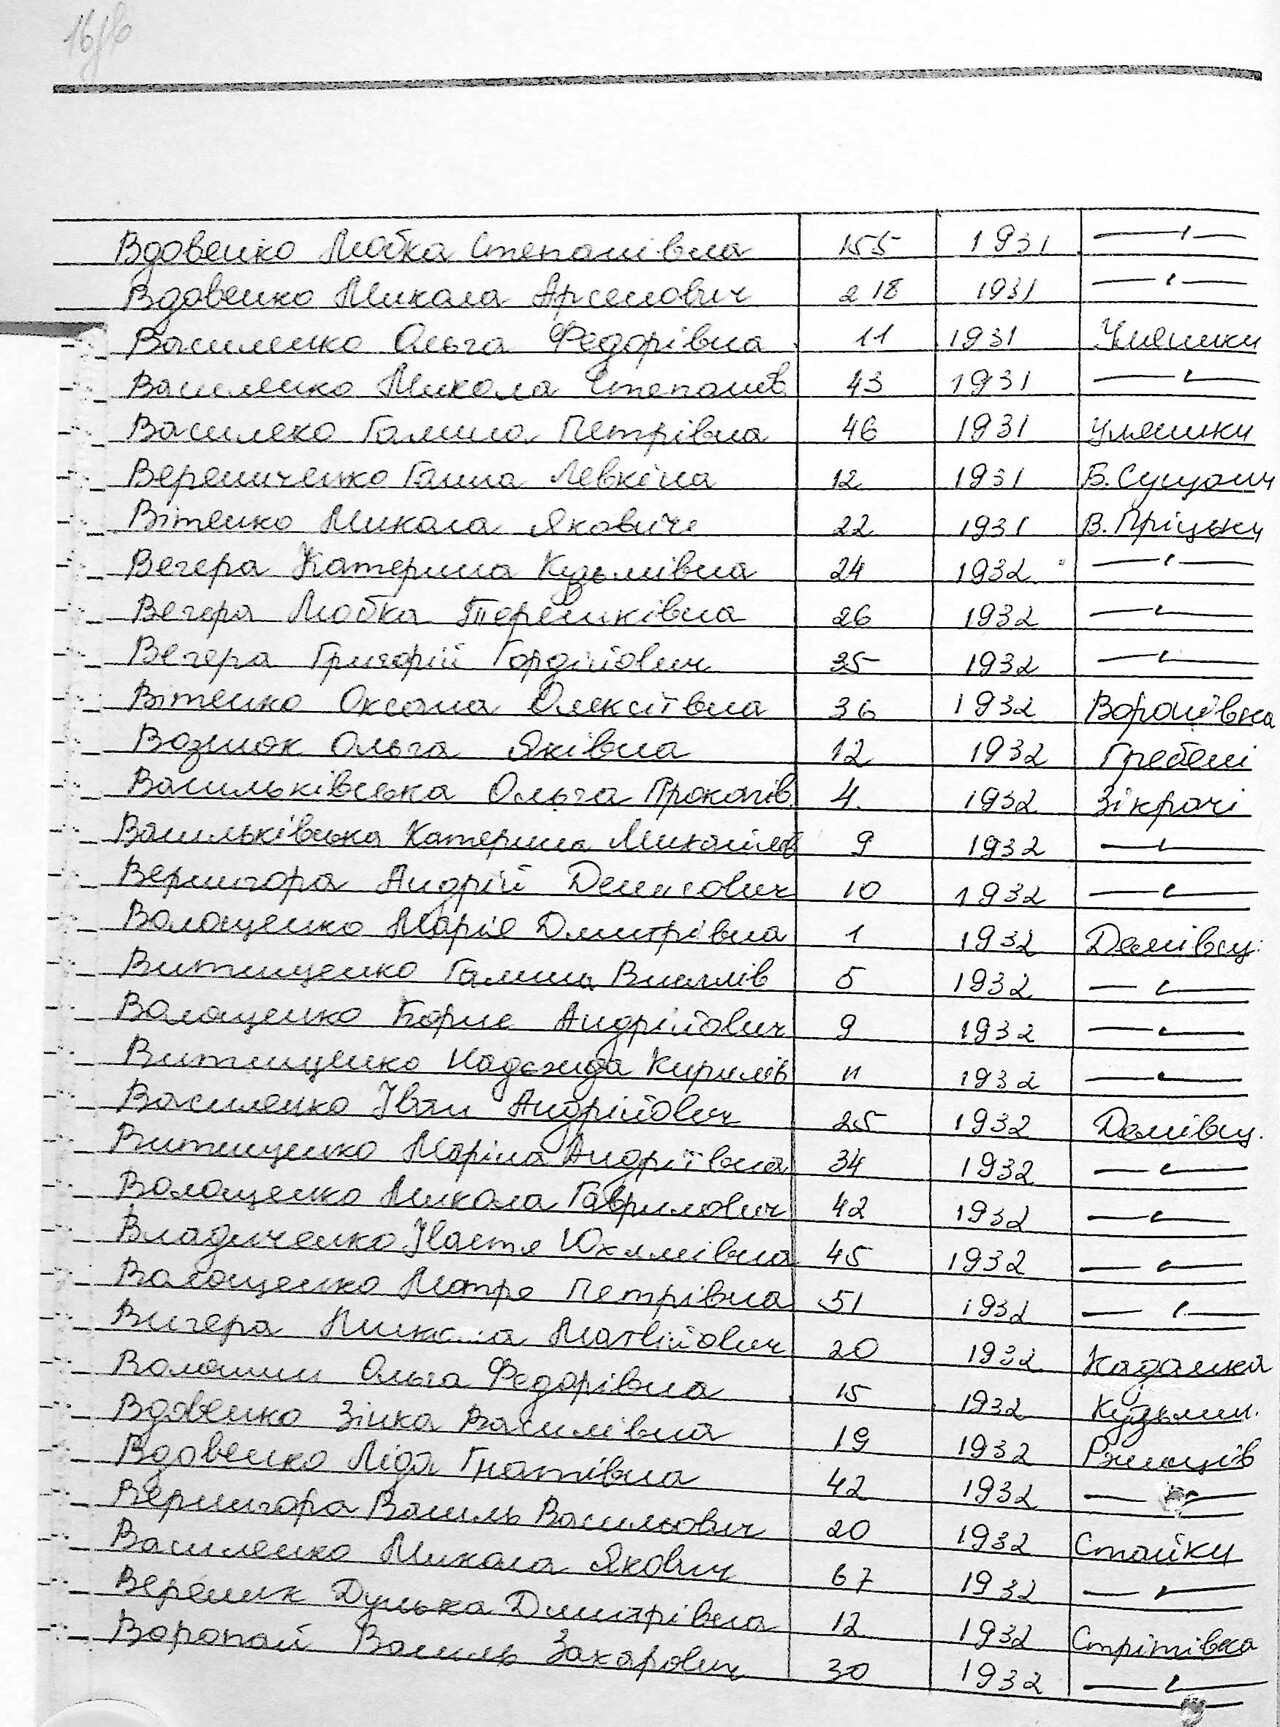 Вдовенко Любка Степанівна 155 1931 —"—
Вдовенко Микола Арсенович 218 1931 —"—
Василенко Ольга Федорівна 11 1931 Уляники
Василенко Микола Степанов 43 1931 —"—
Василеко Галина Петрівна 46 1931 Уляники
Веремиченко Ганна Левківна 12 1931 Б. Сущани
Вітенко Микола Якович 22 1931 В. Пріцьки
Вегера Катерина Кузьмівна 24 1932 —"—
Вегера Любка Терешківна 26 1932 —"—
Вегера Григорій Гордійович 35 1932 —"—
Вітенко Оксана Олексіївна 36 1932 Воронівка
Вознюк Ольга Яківна 12 1932 Гребені
Васильківська Ольга Прокопів 4 1932 Зікрачі
Васильківська Катерина Михайлов 9 1932 —"—
Вернигора Андрій Денисович 10 1932 —"—
Волощенко Марія Дмитрівна 1 1932 Демівщ.
Витищенко Галина 5 1932 —"—
Волощенко Борис Андрійович 9 1932 —"—
Витищенко Надежда Кирилів 11 1932 —"—
Василенко Іван Андрійович 25 1932 Демівщ.
Витищенко Маріна Андріївна 34 1932 —"—
Волощенко Микола Гаврилович 42 1932 —"—
Владиченко Настя Юхимівна 45 1932 —"—
Волощенко Мотря Петрівна 51 1932 —"—
Вигера Микола Матвійович 20 1932 Кадомка
Волошин Ольга Федорівна 15 1932 Кузьмин.
Вдовенко Зінка Василівна 19 1932 Ржищів
Вдовенко Ліда Гнатівна 42 1932 —"—
Вернигора Василь Васильович 20 1932 Стайки
Василенко Микола Якович 67 1932 —"—
Веремик Дунька Дмитрівна 12 1932 Стрітівка
Воропай Василь Захарович 30 1932 —"—